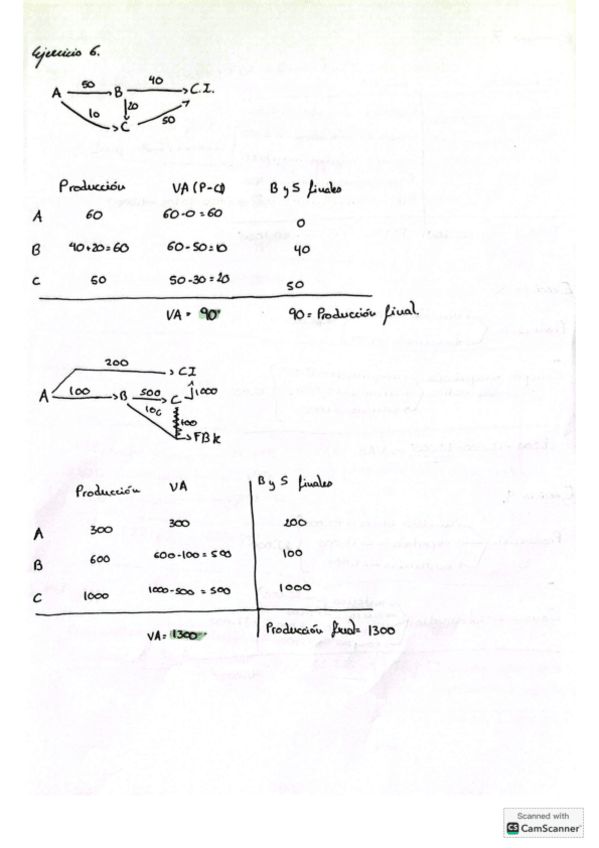 Ejercicio 6.
A 50 B 40 C.I.
10 20 50
C
Producción VA (P-CI) B y S finales
A 60 60-0=60 0
B 40+20=60 60-50=10 40
C 50 50-30=20 50
VA = 90 90 = Producción final.
200 CI
A 100 B 500 C 1000
100 100
FBK
Producción VA B y S finales
A 300 300 200
B 600 600-100=500 100
C 1000 1000-500=500 1000
VA=1300 Producción final=1300
Scanned with
CS CamScanner